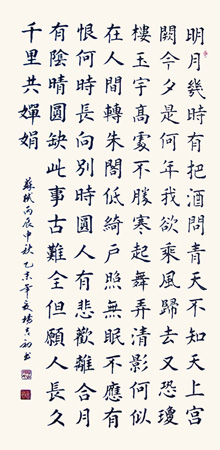 明月幾時有把酒問青天不知天上宮
闕今夕是何年我欲乘風歸去又恐瓊
樓玉宇高處不勝寒起舞弄清影何似
在人間轉朱閣低綺戶照無眠不應有
恨何時長向別時圓人有悲歡離合月
有陰晴圓缺此事古難全但願人長久
千里共嬋娟
蘇軾丙辰中秋乙未年